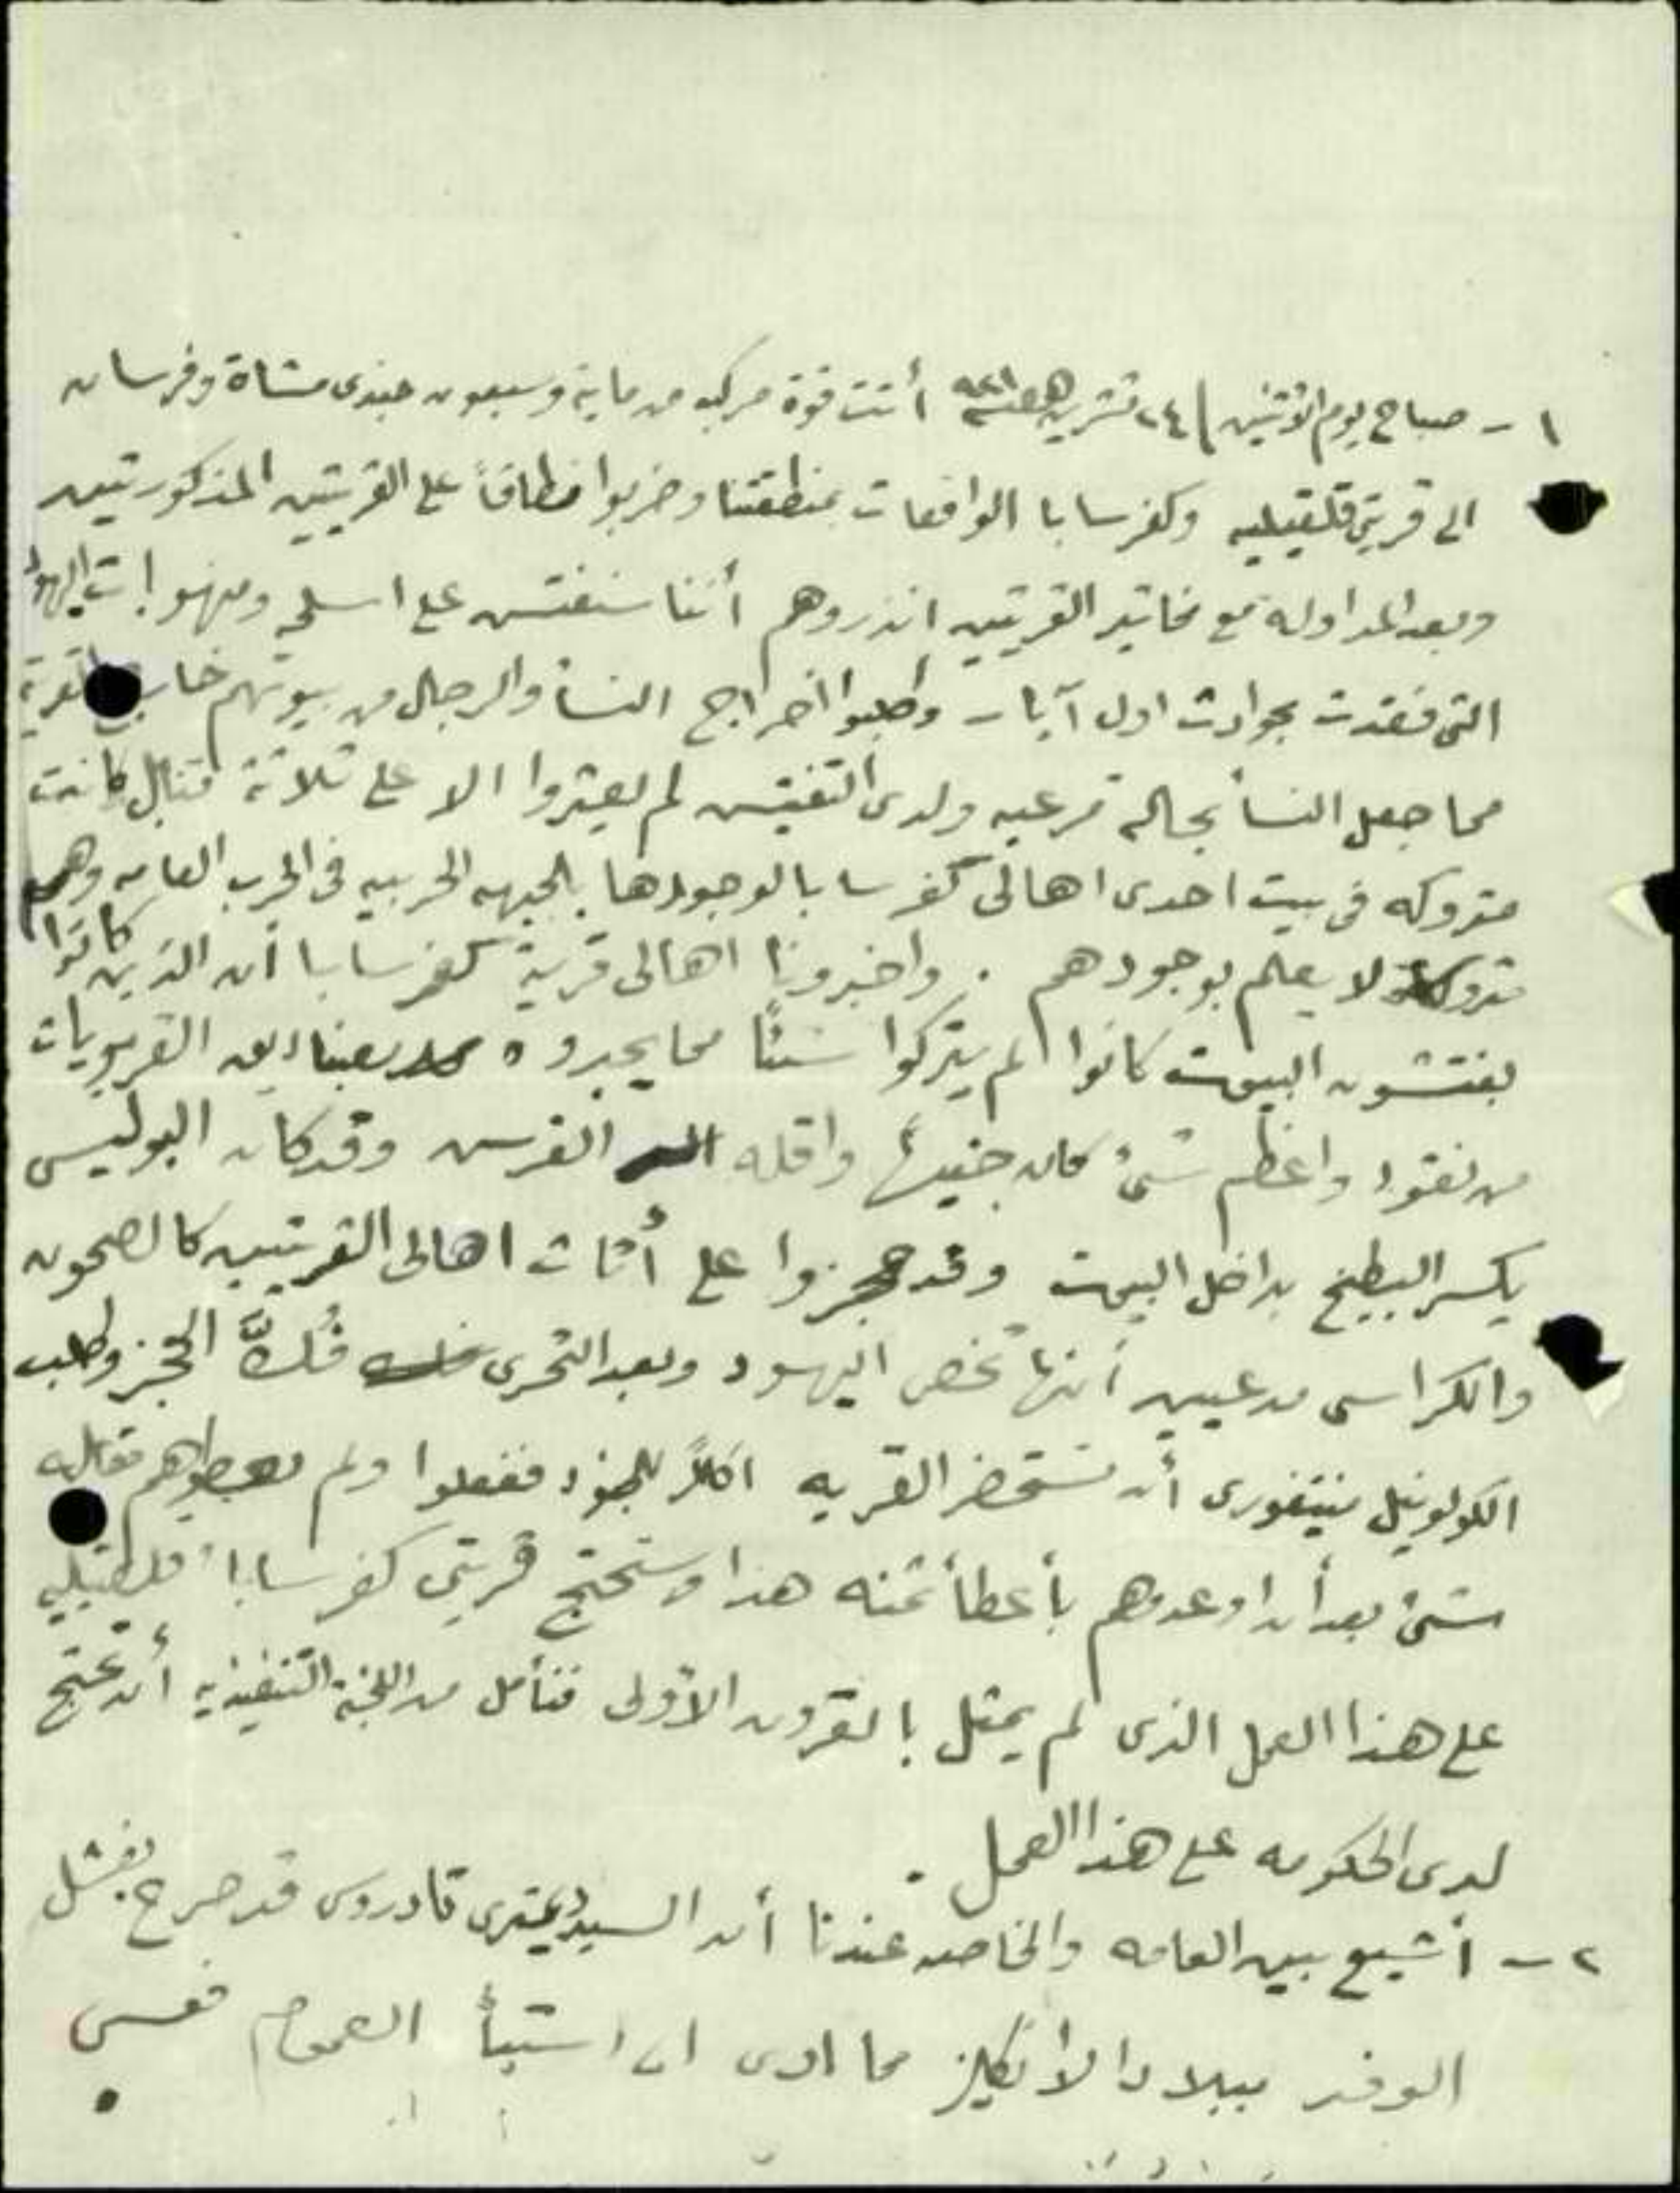 ١ - صباح يوم الاثنين ٢٤ تشرين سنة ٩٢١ أتت قوة مركبه من ماية وسبعون جندى مشاة وفرسان
الى قريتي قلقيليه وكفرسابا الواقعات بمنطقتنا وضربوا نطاقاً على القريتين المذكورتين
وبعد المداوله مع مخاتير القريتين انذروهم أننا سنفتش على اسلحه ومنهوبات اليهود
التى فقدت بحوادث اول آيار وطلبوا اخراج النسأ والرجال من بيوتهم خارج القرية
مما جعل النسأ بحالة مرعبه ولدى التفتيش لم يعثروا الا على ثلاثة قنابل كانت
متروكه فى بيت احدى اهالى كفرسابا لوجودها بالجبهه الحربيه فى الحرب العامه وهى
متروكة لا يعلم بوجودهم . واخبرونا اهالى قرية كفرسابا أن الذين كانوا
يفتشون البيوت كانوا لم يتركوا شئاً مما يجدوه القرويات
من نقود واعظم شئ كان جنيهاً واقله القرش وقد كان البوليس
يكسر البطيخ بداخل البيوت وقد حجزوا على أثاث اهالى القريتين كالصحون
والكراسى مدعيين أنها تخص اليهود وبعد التحرى فُكَّ الحجز وطلب
الكولونيل أن تستحضر القريه اكلاً للجنود ففعلوا ولم يعطوهم مقابله
شئ بعد أن اوعدوهم بأعطأ ثمنه هذا وستحتج قريتى كفرسابا قلقيليه
على هذا العمل الذى لم يمثل بالقرون الأولى فنأمل من اللجنة التنفيذيه أن تحتج
لدى الحكومه على هذا العمل .
٢ - أشيع بين العامه والخاصه عندنا أن السيد ديمترى تادروس قد صرح بفشل
الوفد ببلاد الانكليز مما ادى الى استيأ العموم فعسى